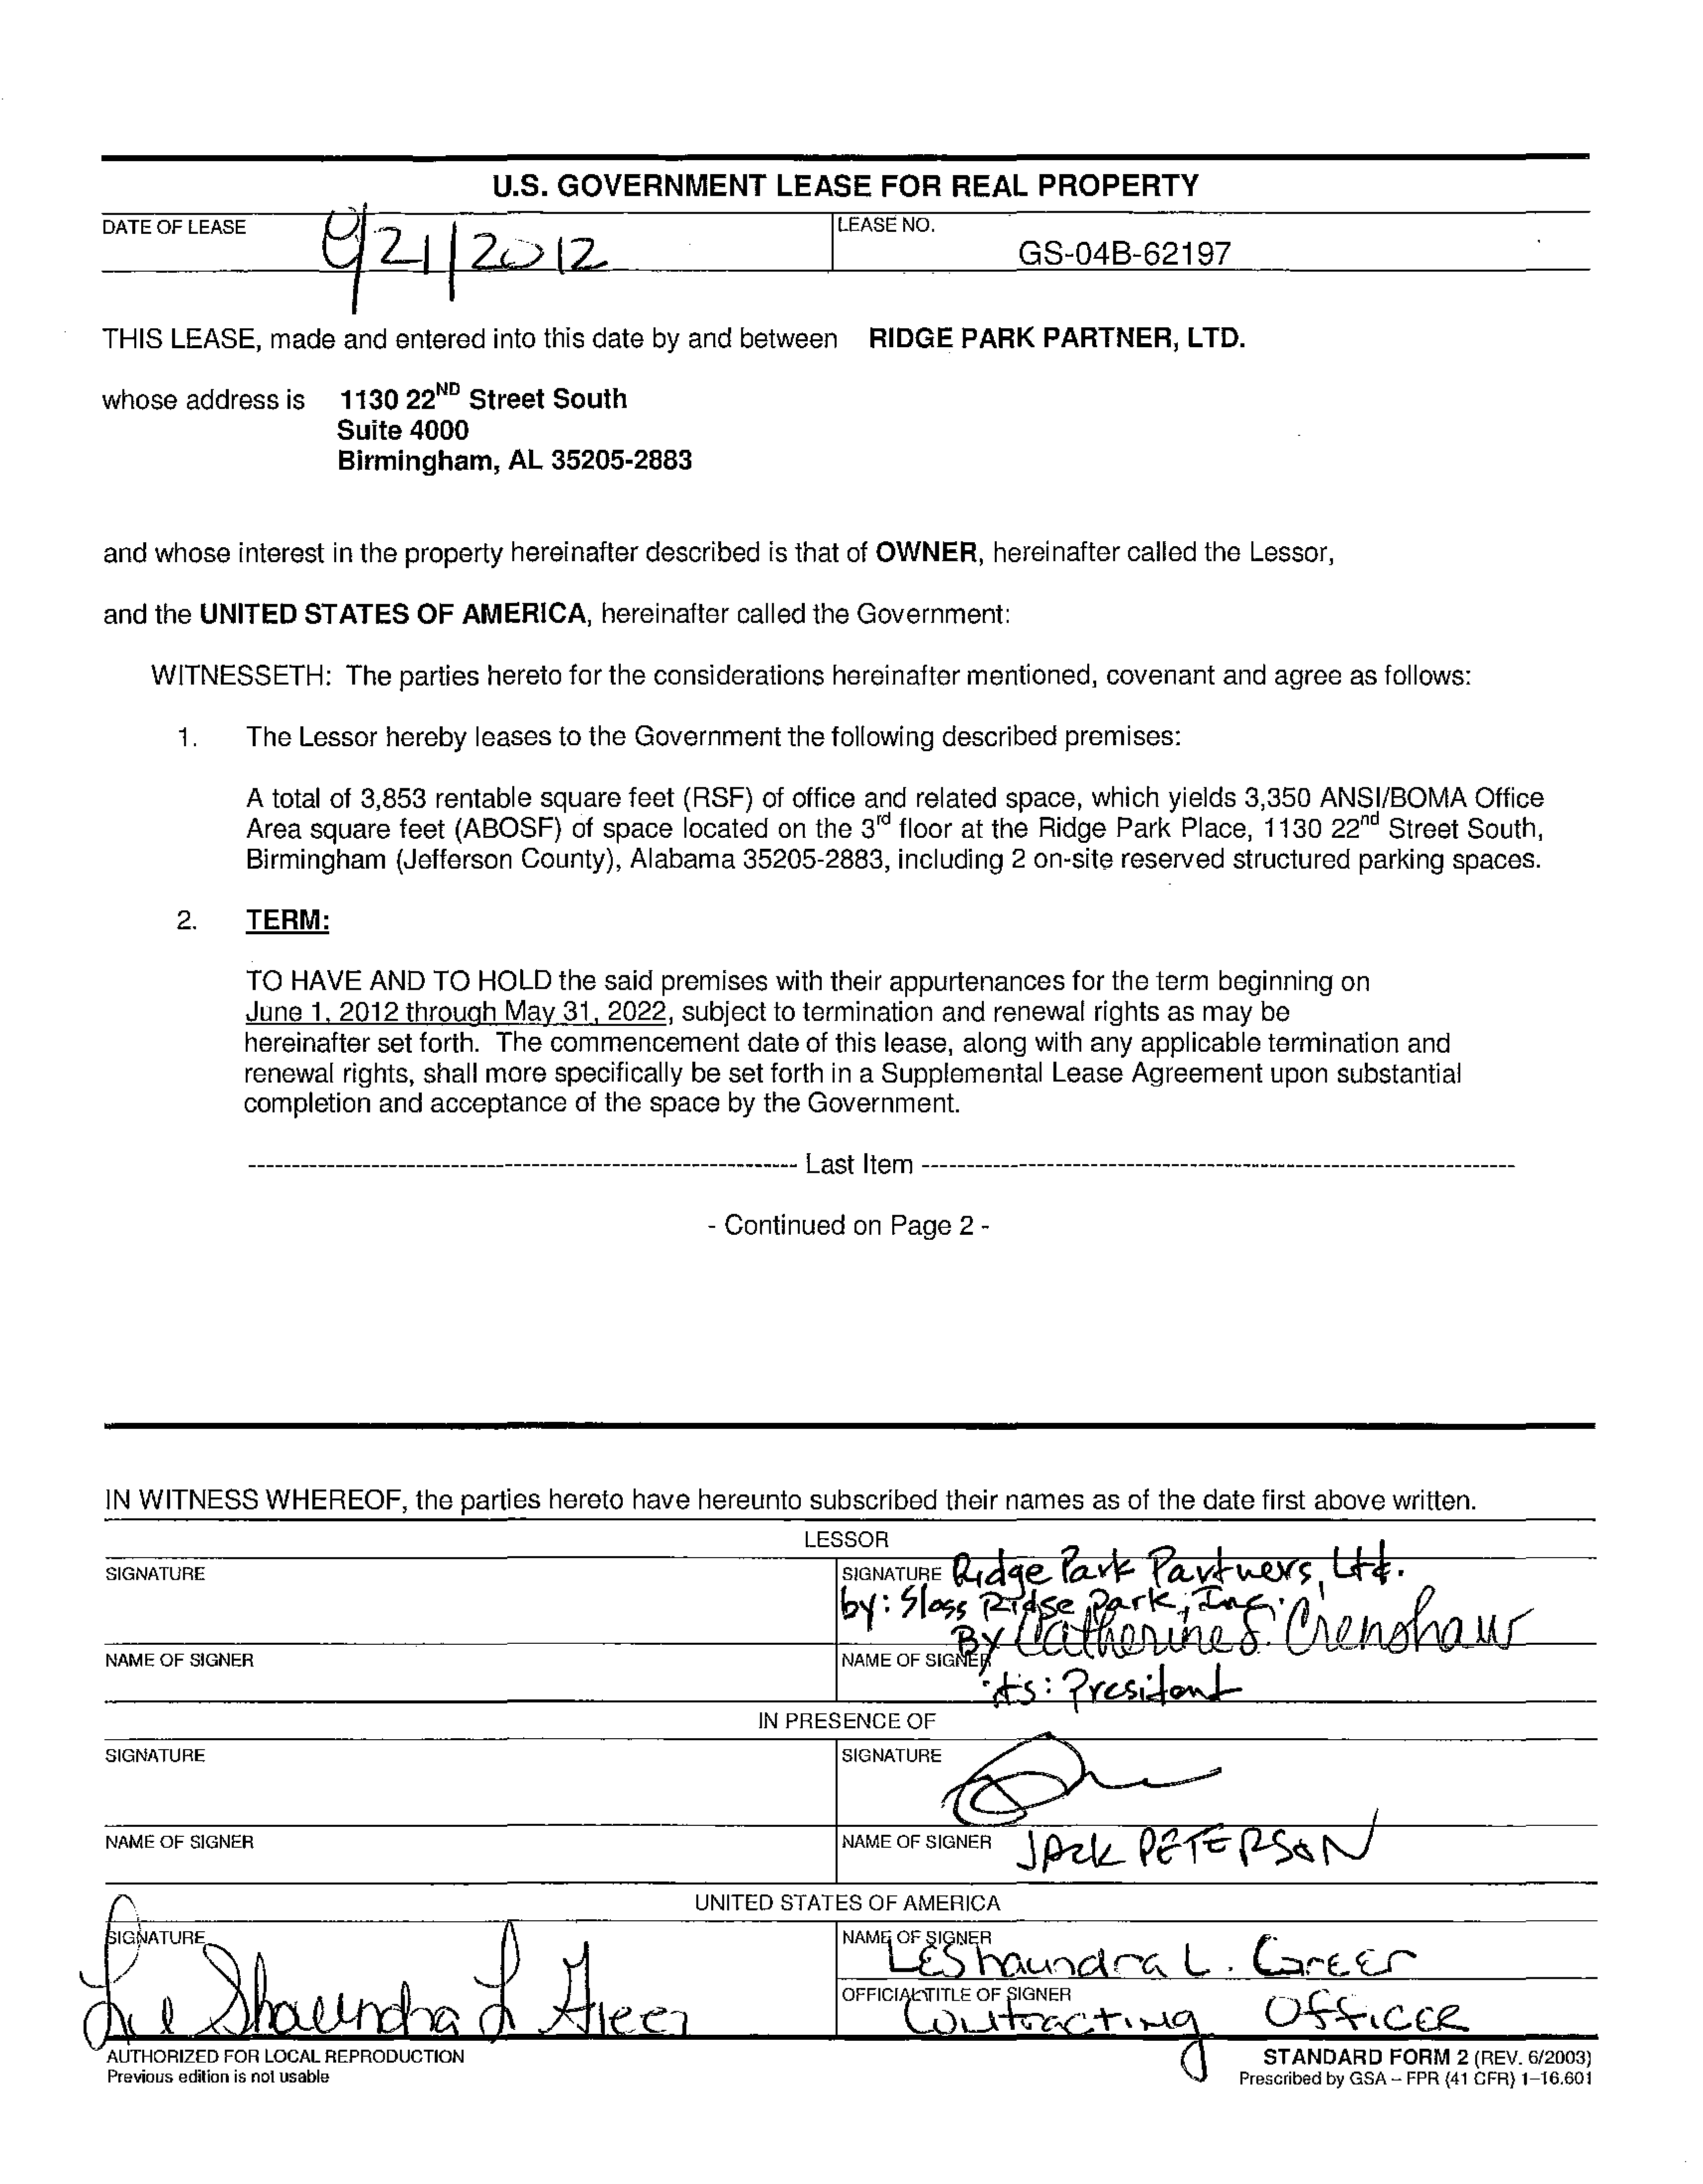 U.S. GOVERNMENT LEASE FOR REAL PROPERTY
DATE OF LEASE 4/21/2012 LEASE NO. GS-04B-62197
THIS LEASE, made and entered into this date by and between RIDGE PARK PARTNER, LTD.
whose address is 1130 22ND Street South
Suite 4000
Birmingham, AL 35205-2883
and whose interest in the property hereinafter described is that of OWNER, hereinafter called the Lessor,
and the UNITED STATES OF AMERICA, hereinafter called the Government:
WITNESSETH: The parties hereto for the considerations hereinafter mentioned, covenant and agree as follows:
1. The Lessor hereby leases to the Government the following described premises:
A total of 3,853 rentable square feet (RSF) of office and related space, which yields 3,350 ANSI/BOMA Office
Area square feet (ABOSF) of space located on the 3rd floor at the Ridge Park Place, 1130 22nd Street South,
Birmingham (Jefferson County), Alabama 35205-2883, including 2 on-site reserved structured parking spaces.
2. TERM:
TO HAVE AND TO HOLD the said premises with their appurtenances for the term beginning on
June 1, 2012 through May 31, 2022, subject to termination and renewal rights as may be
hereinafter set forth. The commencement date of this lease, along with any applicable termination and
renewal rights, shall more specifically be set forth in a Supplemental Lease Agreement upon substantial
completion and acceptance of the space by the Government.
---------- Last Item ----------
- Continued on Page 2 -
IN WITNESS WHEREOF, the parties hereto have hereunto subscribed their names as of the date first above written.
LESSOR
SIGNATURE SIGNATURE Ridge Park Partners, Ltd.
by: Sloss Ridge Park, Inc.
By Catherine S. Crenshaw
NAME OF SIGNER NAME OF SIGNER
its: President
IN PRESENCE OF
SIGNATURE SIGNATURE
NAME OF SIGNER NAME OF SIGNER JACK PETERSON
UNITED STATES OF AMERICA
SIGNATURE NAME OF SIGNER
LeShaundra L Greer LEShaundra L. Greer
OFFICIAL TITLE OF SIGNER
Contracting Officer
AUTHORIZED FOR LOCAL REPRODUCTION STANDARD FORM 2 (REV. 6/2003)
Previous edition is not usable Prescribed by GSA – FPR (41 CFR) 1–16.601